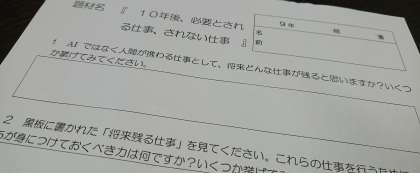 題材名 『 10年後、必要とされ
る仕事、されない仕事 』
9年 組 番
名
前
1 AIではなく人間が携わる仕事として、将来どんな仕事が残ると思いますか?いくつ
か挙げてみてください。
2 黒板に置かれた「将来残る仕事」を見てください。これらの仕事を行うために
ちが身につけておくべき力は何ですか?いくつか挙げて